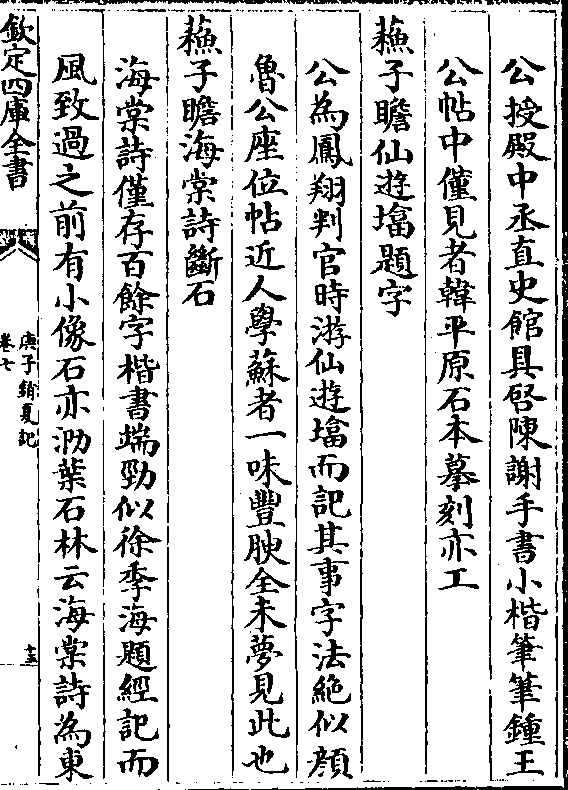 公授殿中丞直史館具啓陳謝手書小楷筆筆鍾王
公帖中僅見者韓平原石本摹刻亦工
蘓子瞻仙逰墖題字
公為鳳翔判官時游仙逰墖而記其事字法絶似顔
魯公座位帖近人學蘇者一味豐腴全未夢見此也
蘓子瞻海棠詩斷石
海棠詩僅存百餘字楷書端勁似徐季海題經記而
風致過之前有小像石亦泐葉石林云海棠詩為東
欽定四庫全書
庚子銷夏記
卷七
十三